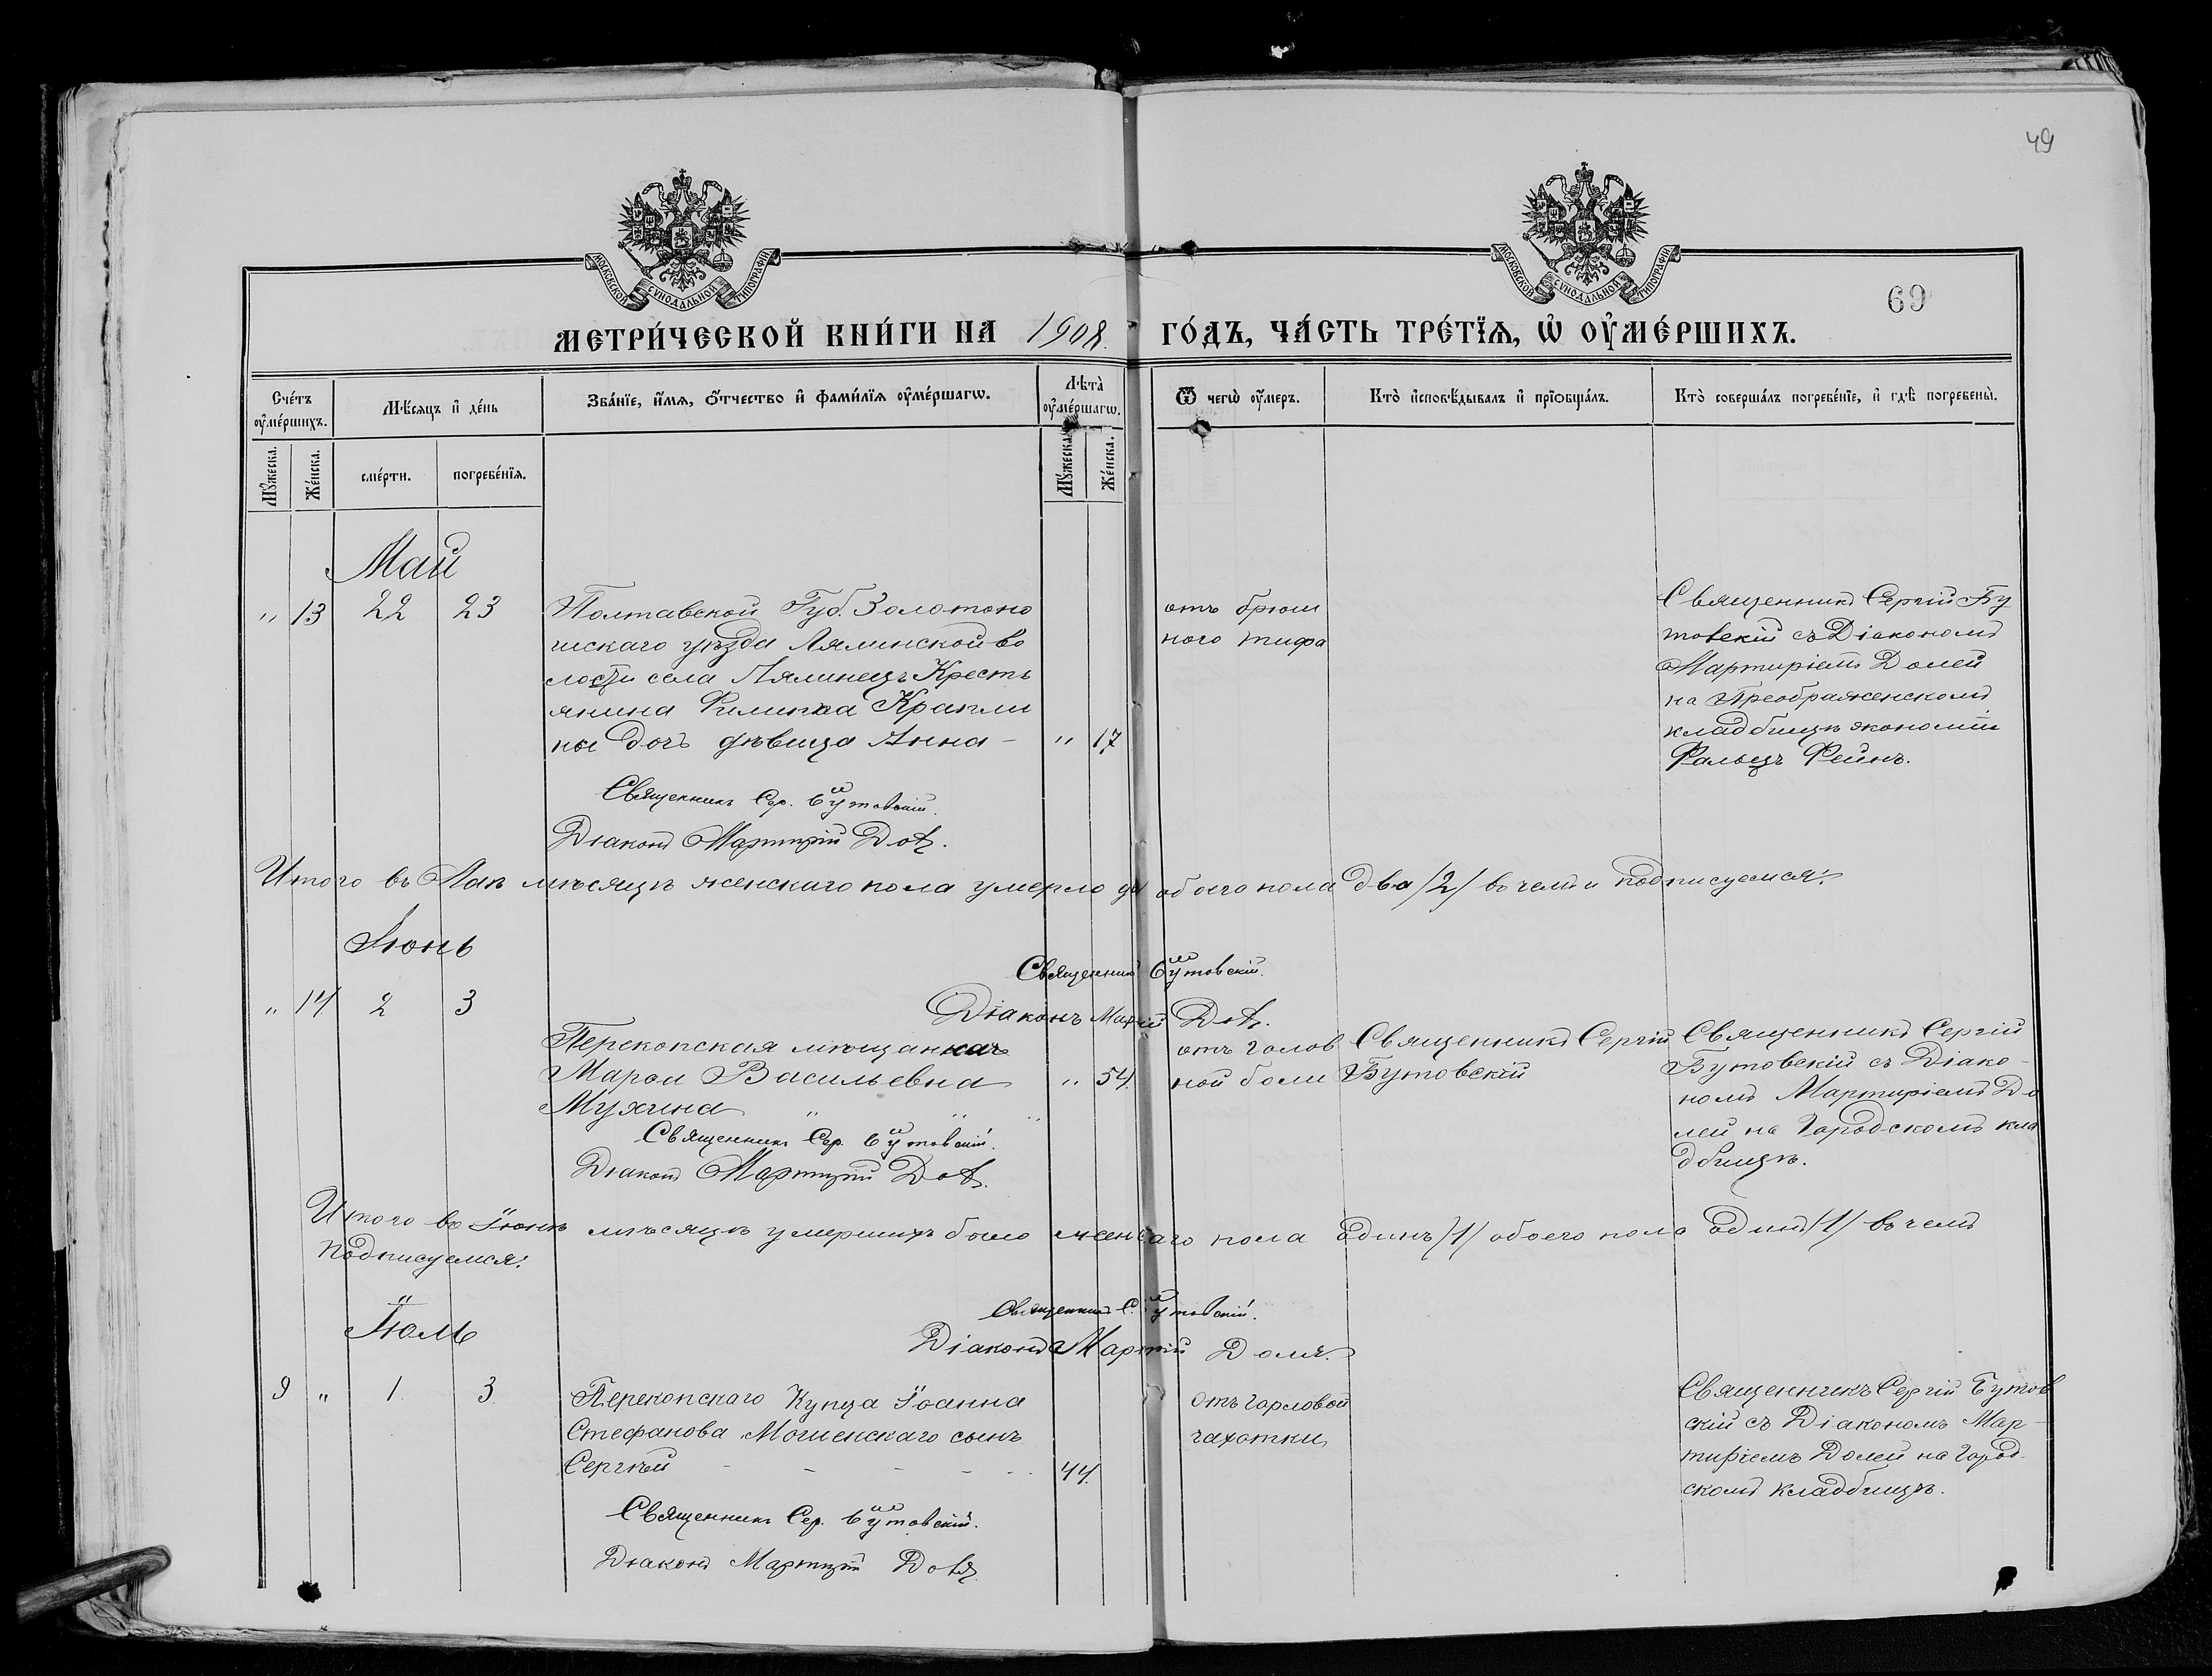 49
МОСКОВСКОЙ СѴНОДАЛЬНОЙ ТИПОГРАФІИ
МОСКОВСКОЙ СѴНОДАЛЬНОЙ ТИПОГРАФІИ
69
МЕТРИ́ЧЕСКОЙ КНИ́ГИ НА 1908. ГО́ДЪ, ЧА́СТЬ ТРЕ́ТЇѦ, Ѡ҆ ОУ҆МЕ́РШИХЪ.
Сче́тъ оу҆ме́ршихъ.
Мѣ́сяцъ и҆ де́нь
Зва́нїе, и҆́мѧ, ѻ҆́тчество и҆ фами́лїѧ оу҆ме́ршагѡ.
Лѣ́та оу҆ме́ршагѡ.
Ѿ чегѡ̀ оу҆́меръ.
Кто̀ и҆сповѣ́дывалъ и҆ прїѡбща́лъ.
Кто̀ соверша́лъ погребе́нїе, и҆ гдѣ̀ погребены̀.
Мꙋ́жеска.
Же́нска.
сме́рти.
погребе́нїѧ.
Мꙋ́жеска.
Же́нска.
Май
„ 13 22 23
Полтавской Губ. Золотоно
шскаго уѣзда Лялинской во
лости села Лялинецъ Кресть
янина Филиппа Крапли
ны дочь дѣвица Анна – „ 17
отъ брюш
ного тифа
Священникъ Сергій Бу
товскій съ Діакономъ
Мартиріемъ Долей
на Преображенскомъ
кладбищѣ экономіи
Фальцъ Фейнъ.
Священникъ Сер. Бутовскій.
Діаконъ Мартирій Доля.
Итого въ Маѣ мѣсяцѣ женскаго пола умерло обоего пола два /2/ въ чемъ и подписуемся:
Іюнь
Священникъ Бутовскій.
Діаконъ Доля.
„ 14 2 3
Перекопская мѣщанка
Марѳа Васильевна „ 54.
Мухина „ „ „
отъ голов
ной боли
Священникъ Сергій
Бутовскій
Священникъ Сергій
Бутовскій съ Діако-
номъ Мартиріемъ До
лей на Городскомъ кла
дбищѣ.
Священникъ Сер. Бутовскій.
Діаконъ Мартирій Доля.
Итого въ Іюнѣ мѣсяцѣ умершихъ было женскаго пола одинъ /1/ обоего пола одинъ /1/ въ чемъ
подписуемся:
Священникъ С. Бутовскій.
Діаконъ Мартирій Доля.
Іюль
9 „ 1. 3.
Перекопскаго Купца Іоанна
Стефанова Могиленскаго сынъ
Сергѣй – – – – – 44.
отъ горловой
чахотки
Священникъ Сергій Бутов
скій съ Діакономъ Мар-
тиріемъ Долей на Город-
скомъ кладбищѣ.
Священникъ Сер. Бутовскій.
Діаконъ Мартирій Доля.